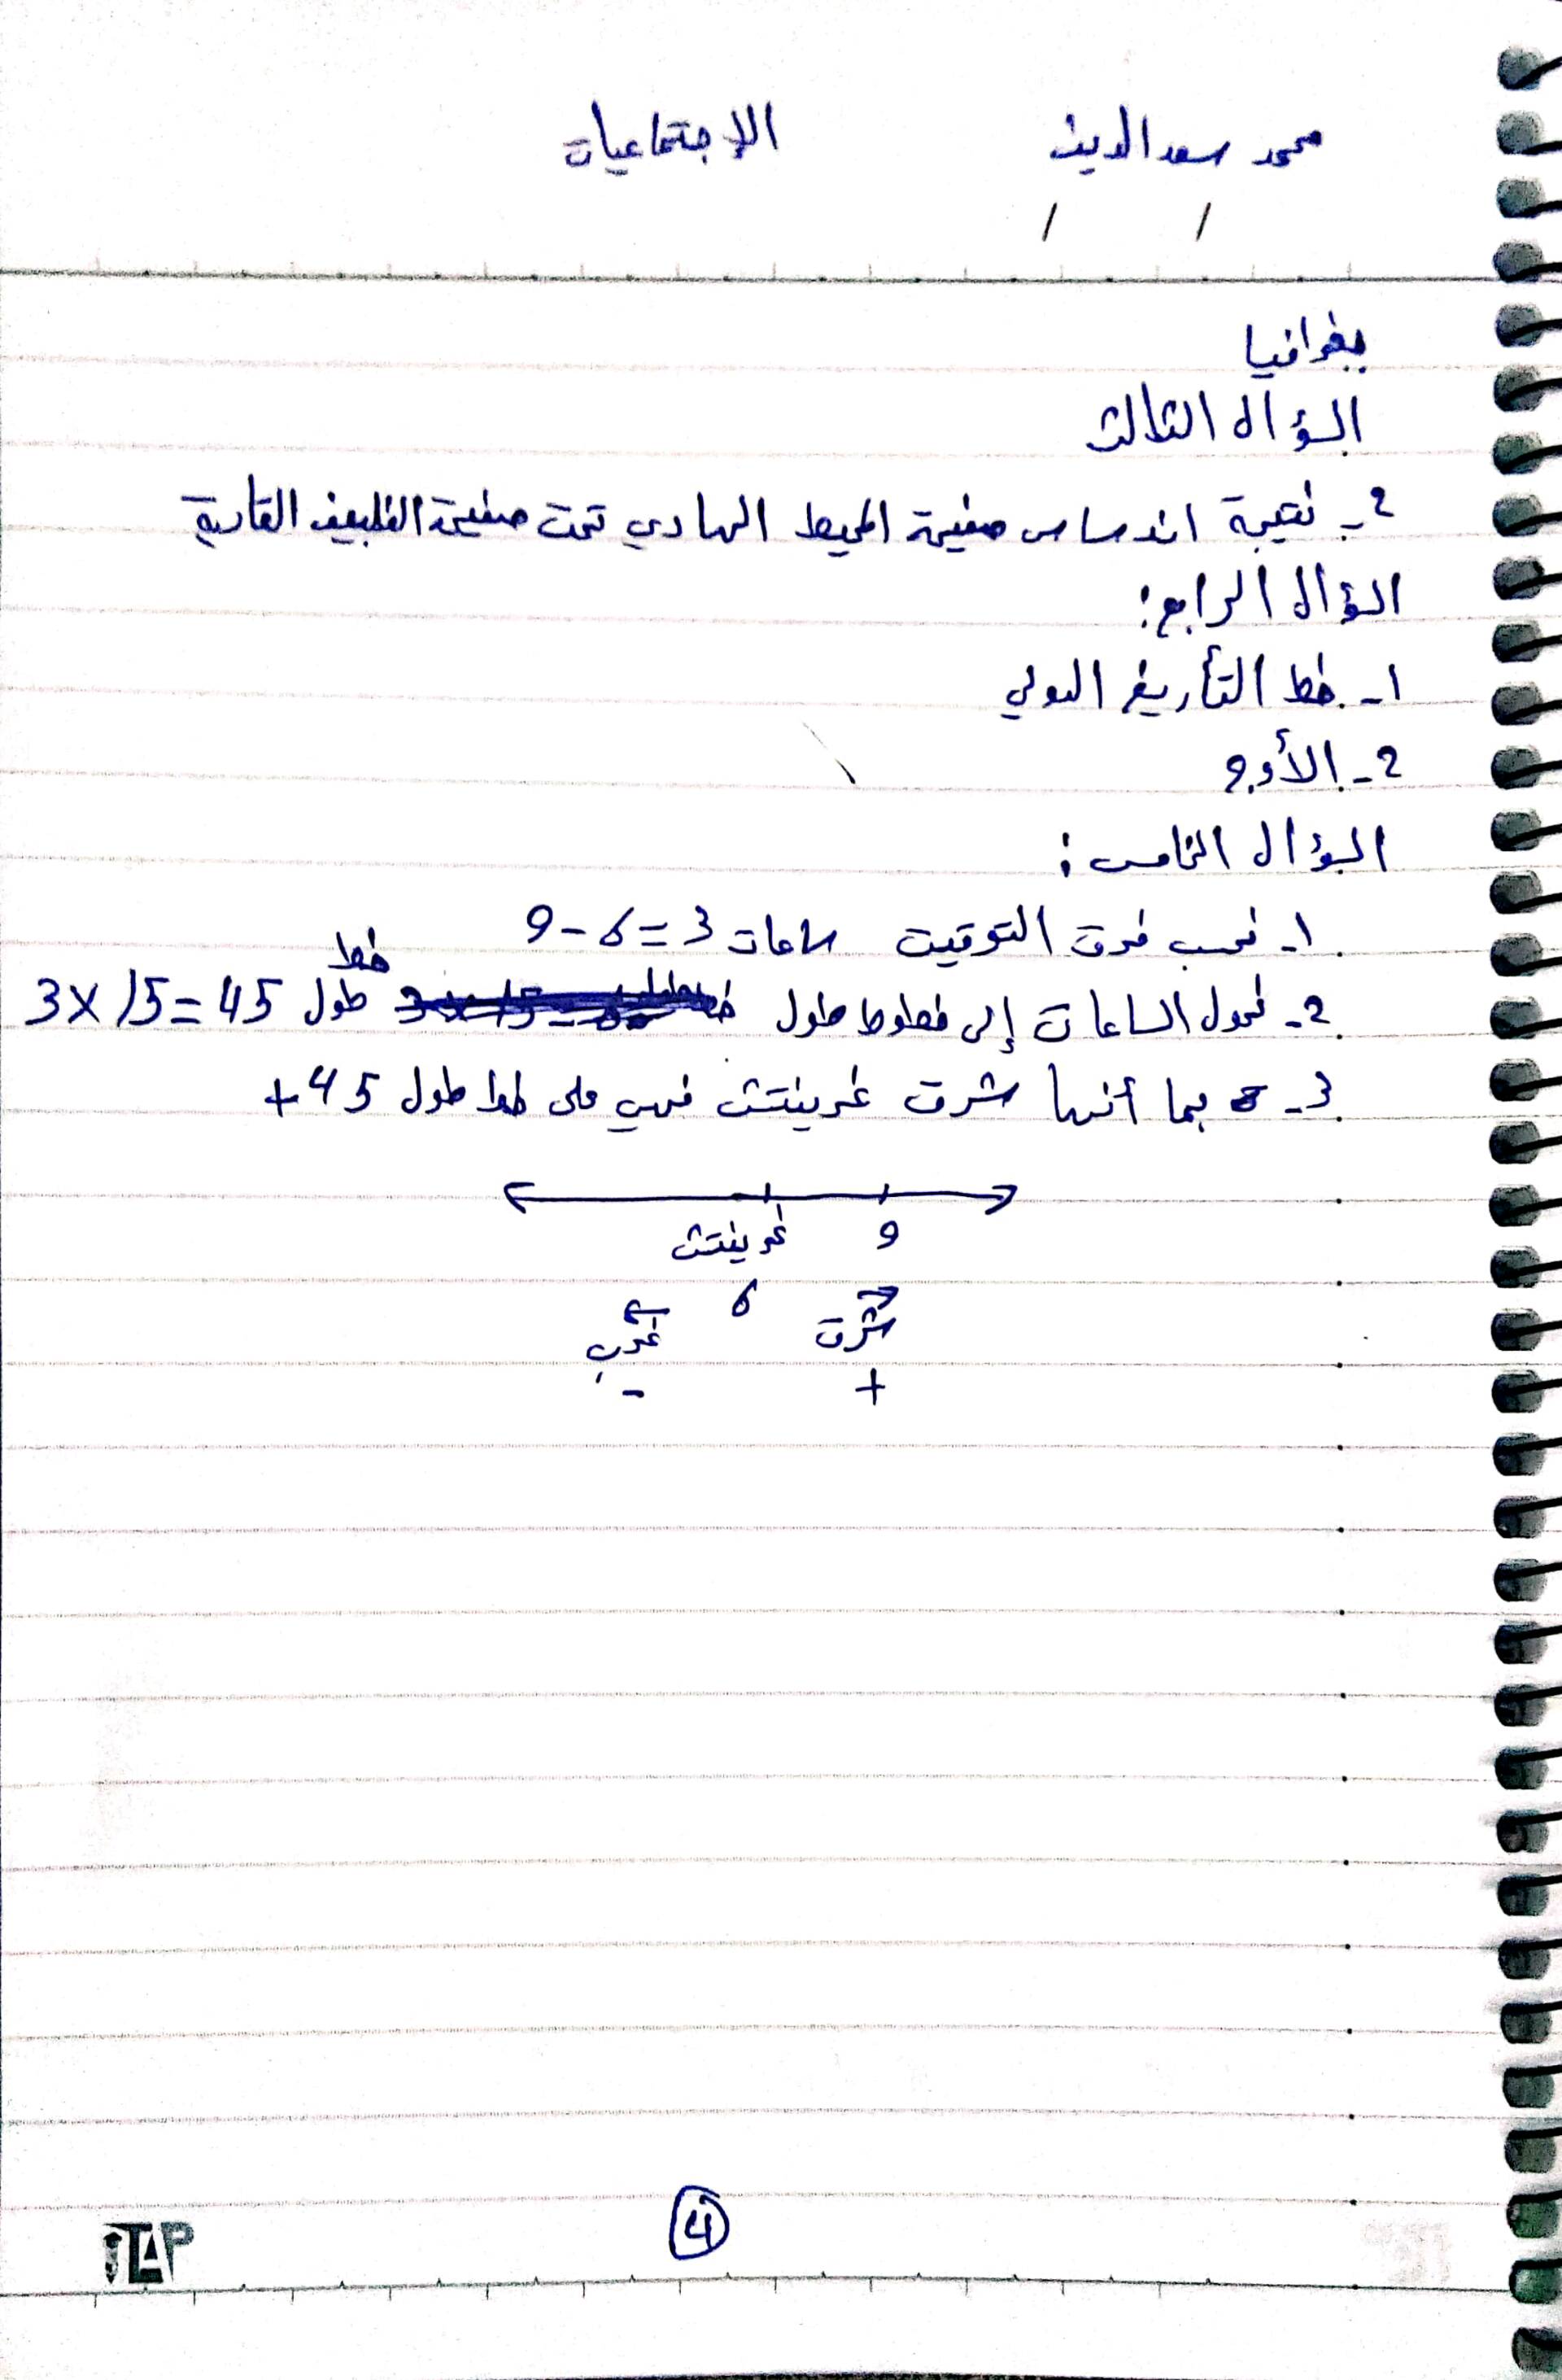 محمد سعد الدين الاجتماعيات
/ /
جغرافيا
السؤال الثالث
2- نتيجة اندساس صفيحة المحيط الهادي تحت صفيحة الفلبين القارية
السؤال الرابع:
1- خط التأريخ الدولي
2- الأوج
السؤال الخامس:
1- نحسب فرق التوقيت 9-6=3 ساعات
خط
2- نحول الساعات إلى خطوط طول 3×15=45 طول
3- بما أنها شرق غرينتش فهي على خط طول 45+
غرينتش 9
6
غرب شرق
- +
4
TAP